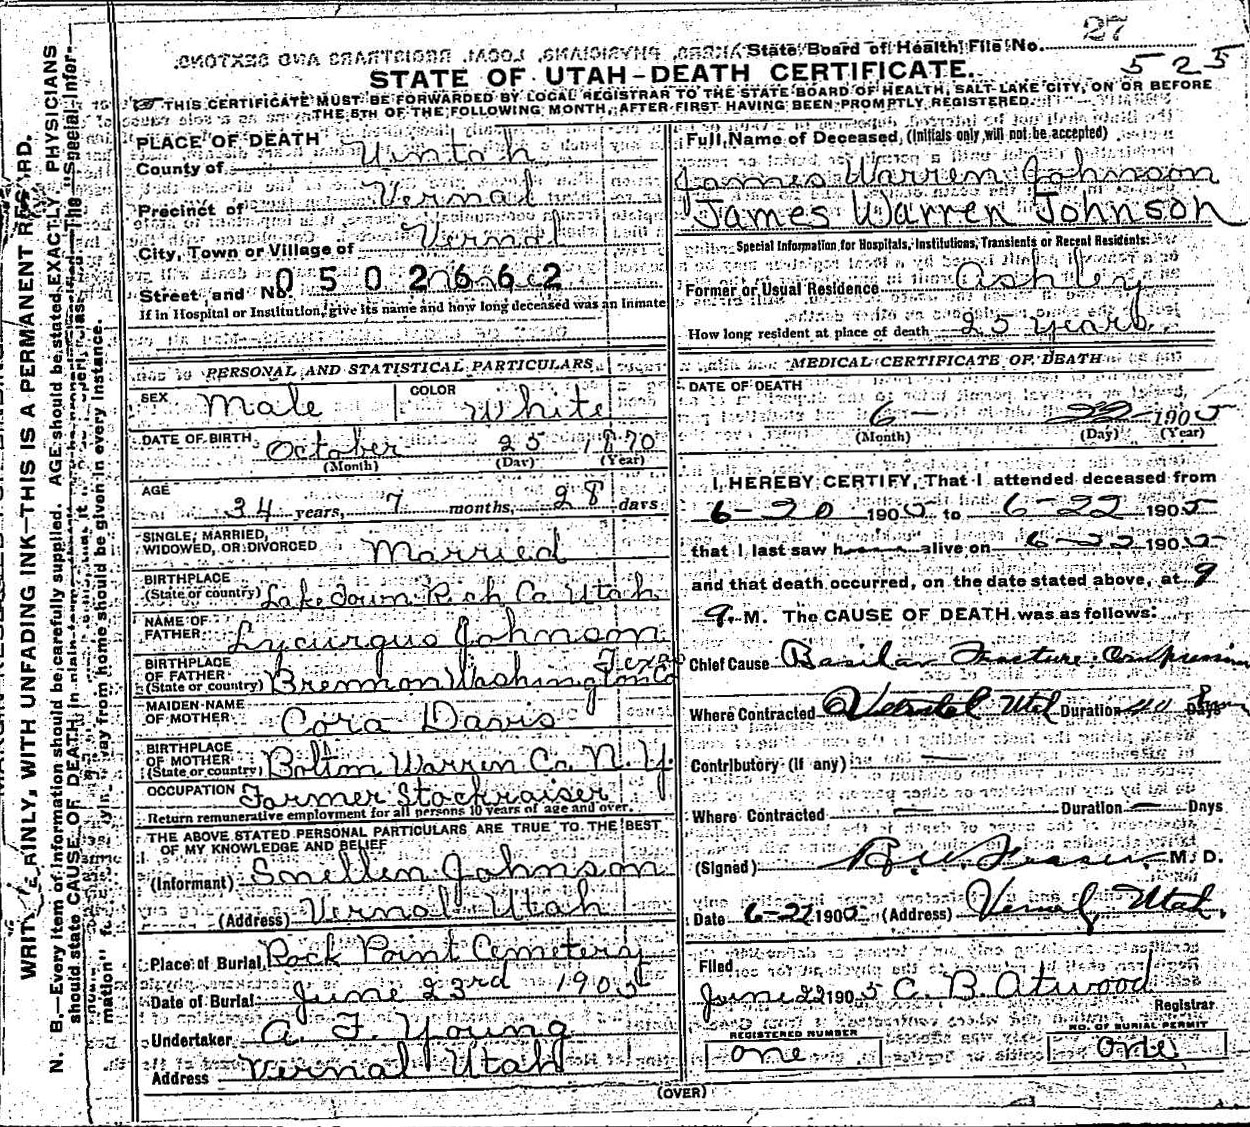 27
State Board of Health File No. 525
STATE OF UTAH-DEATH CERTIFICATE.
THIS CERTIFICATE MUST BE FORWARDED BY LOCAL REGISTRAR TO THE STATE BOARD OF HEALTH, SALT LAKE CITY, ON OR BEFORE
THE 5TH OF THE FOLLOWING MONTH, AFTER FIRST HAVING BEEN PROMPTLY REGISTERED.
PLACE OF DEATH
County of Uintah
Precinct of Vernal
City, Town or Village of Vernal
Street and No. 0502662
If in Hospital or Institution, give its name and how long deceased was an inmate
PERSONAL AND STATISTICAL PARTICULARS
SEX Male COLOR White
DATE OF BIRTH October 25 1870
(Month) (Day) (Year)
AGE 34 years, 7 months, 28 days
SINGLE, MARRIED,
WIDOWED, OR DIVORCED Married
BIRTHPLACE
(State or country) Lake Town Rich Co Utah
NAME OF
FATHER Lycurgus Johnson
BIRTHPLACE
OF FATHER
(State or country) Brennon Washington Co Texas
MAIDEN NAME
OF MOTHER Cora Davis
BIRTHPLACE
OF MOTHER
(State or country) Bolton Warren Co. N. Y.
OCCUPATION Farmer Stockraiser
Return remunerative employment for all persons 10 years of age and over.
THE ABOVE STATED PERSONAL PARTICULARS ARE TRUE TO THE BEST
OF MY KNOWLEDGE AND BELIEF
(Informant) Snellen Johnson
(Address) Vernal Utah
Place of Burial Rock Point Cemetery
Date of Burial June 23rd 1905
Undertaker A. F. Young
Address Vernal Utah
Full Name of Deceased, (Initials only will not be accepted)
James Warren Johnson
James Warren Johnson
Special Information for Hospitals, Institutions, Transients or Recent Residents:
Former or Usual Residence Ashley
How long resident at place of death 25 years
MEDICAL CERTIFICATE OF DEATH
DATE OF DEATH
6- 22- 1905
(Month) (Day) (Year)
I HEREBY CERTIFY, That I attended deceased from
6-20 1905 to 6-22 1905
that I last saw h alive on 6-22 1905
and that death occurred, on the date stated above, at 9
M. The CAUSE OF DEATH was as follows:
Chief Cause Basilar Fracture Compression
Where Contracted Vernal Utah Duration Days
Contributory (If any)
Where Contracted Duration Days
(Signed) M. D.
Date 6-22 1905 (Address) Vernal, Utah.
Filed
June 22 1905 C. B. Atwood
Registrar
REGISTERED NUMBER
one
NO. OF BURIAL PERMIT
one
(OVER)
WRITE PLAINLY, WITH UNFADING INK-THIS IS A PERMANENT RECORD.
N. B.-Every item of information should be carefully supplied. AGE should be stated EXACTLY. PHYSICIANS
should state CAUSE OF DEATH in plain The "Special Infor-
mation" away from home should be given in every instance.